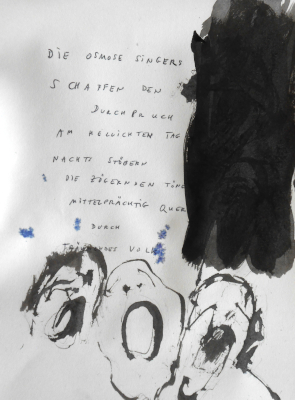 DIE OSMOSE SINGERS
SCHAFFEN DEN
DURCHBRUCH
AM HELLICHTEN TAG
NACHTS STÖBERN
DIE ZÖGERNDEN
MITTELPRÄCHTIG QUER
DURCH